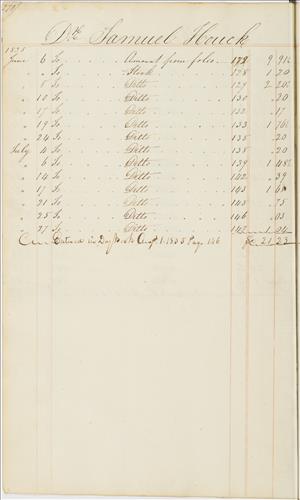 Dr. Samuel Houck
1835
June 6 To Amount from folio 9 91½
" " To Stock 128 1 20
" 8 To Ditto 129 2 20½
" 10 To Ditto 130 .30
" To Ditto .17
" 19 To Ditto 133 1 76½
" 24 To Ditto 135 .20
July 4 To Ditto .20
" 6 To Ditto 139 1 48½
" 14 To Ditto 142 .39
" 17 To Ditto 103 1
" 21 To Ditto 145 .75
" 25 To Ditto 146 .03
" 27 To Ditto
Entered in Day Book Augt 1. 1835 Page 146 21 23